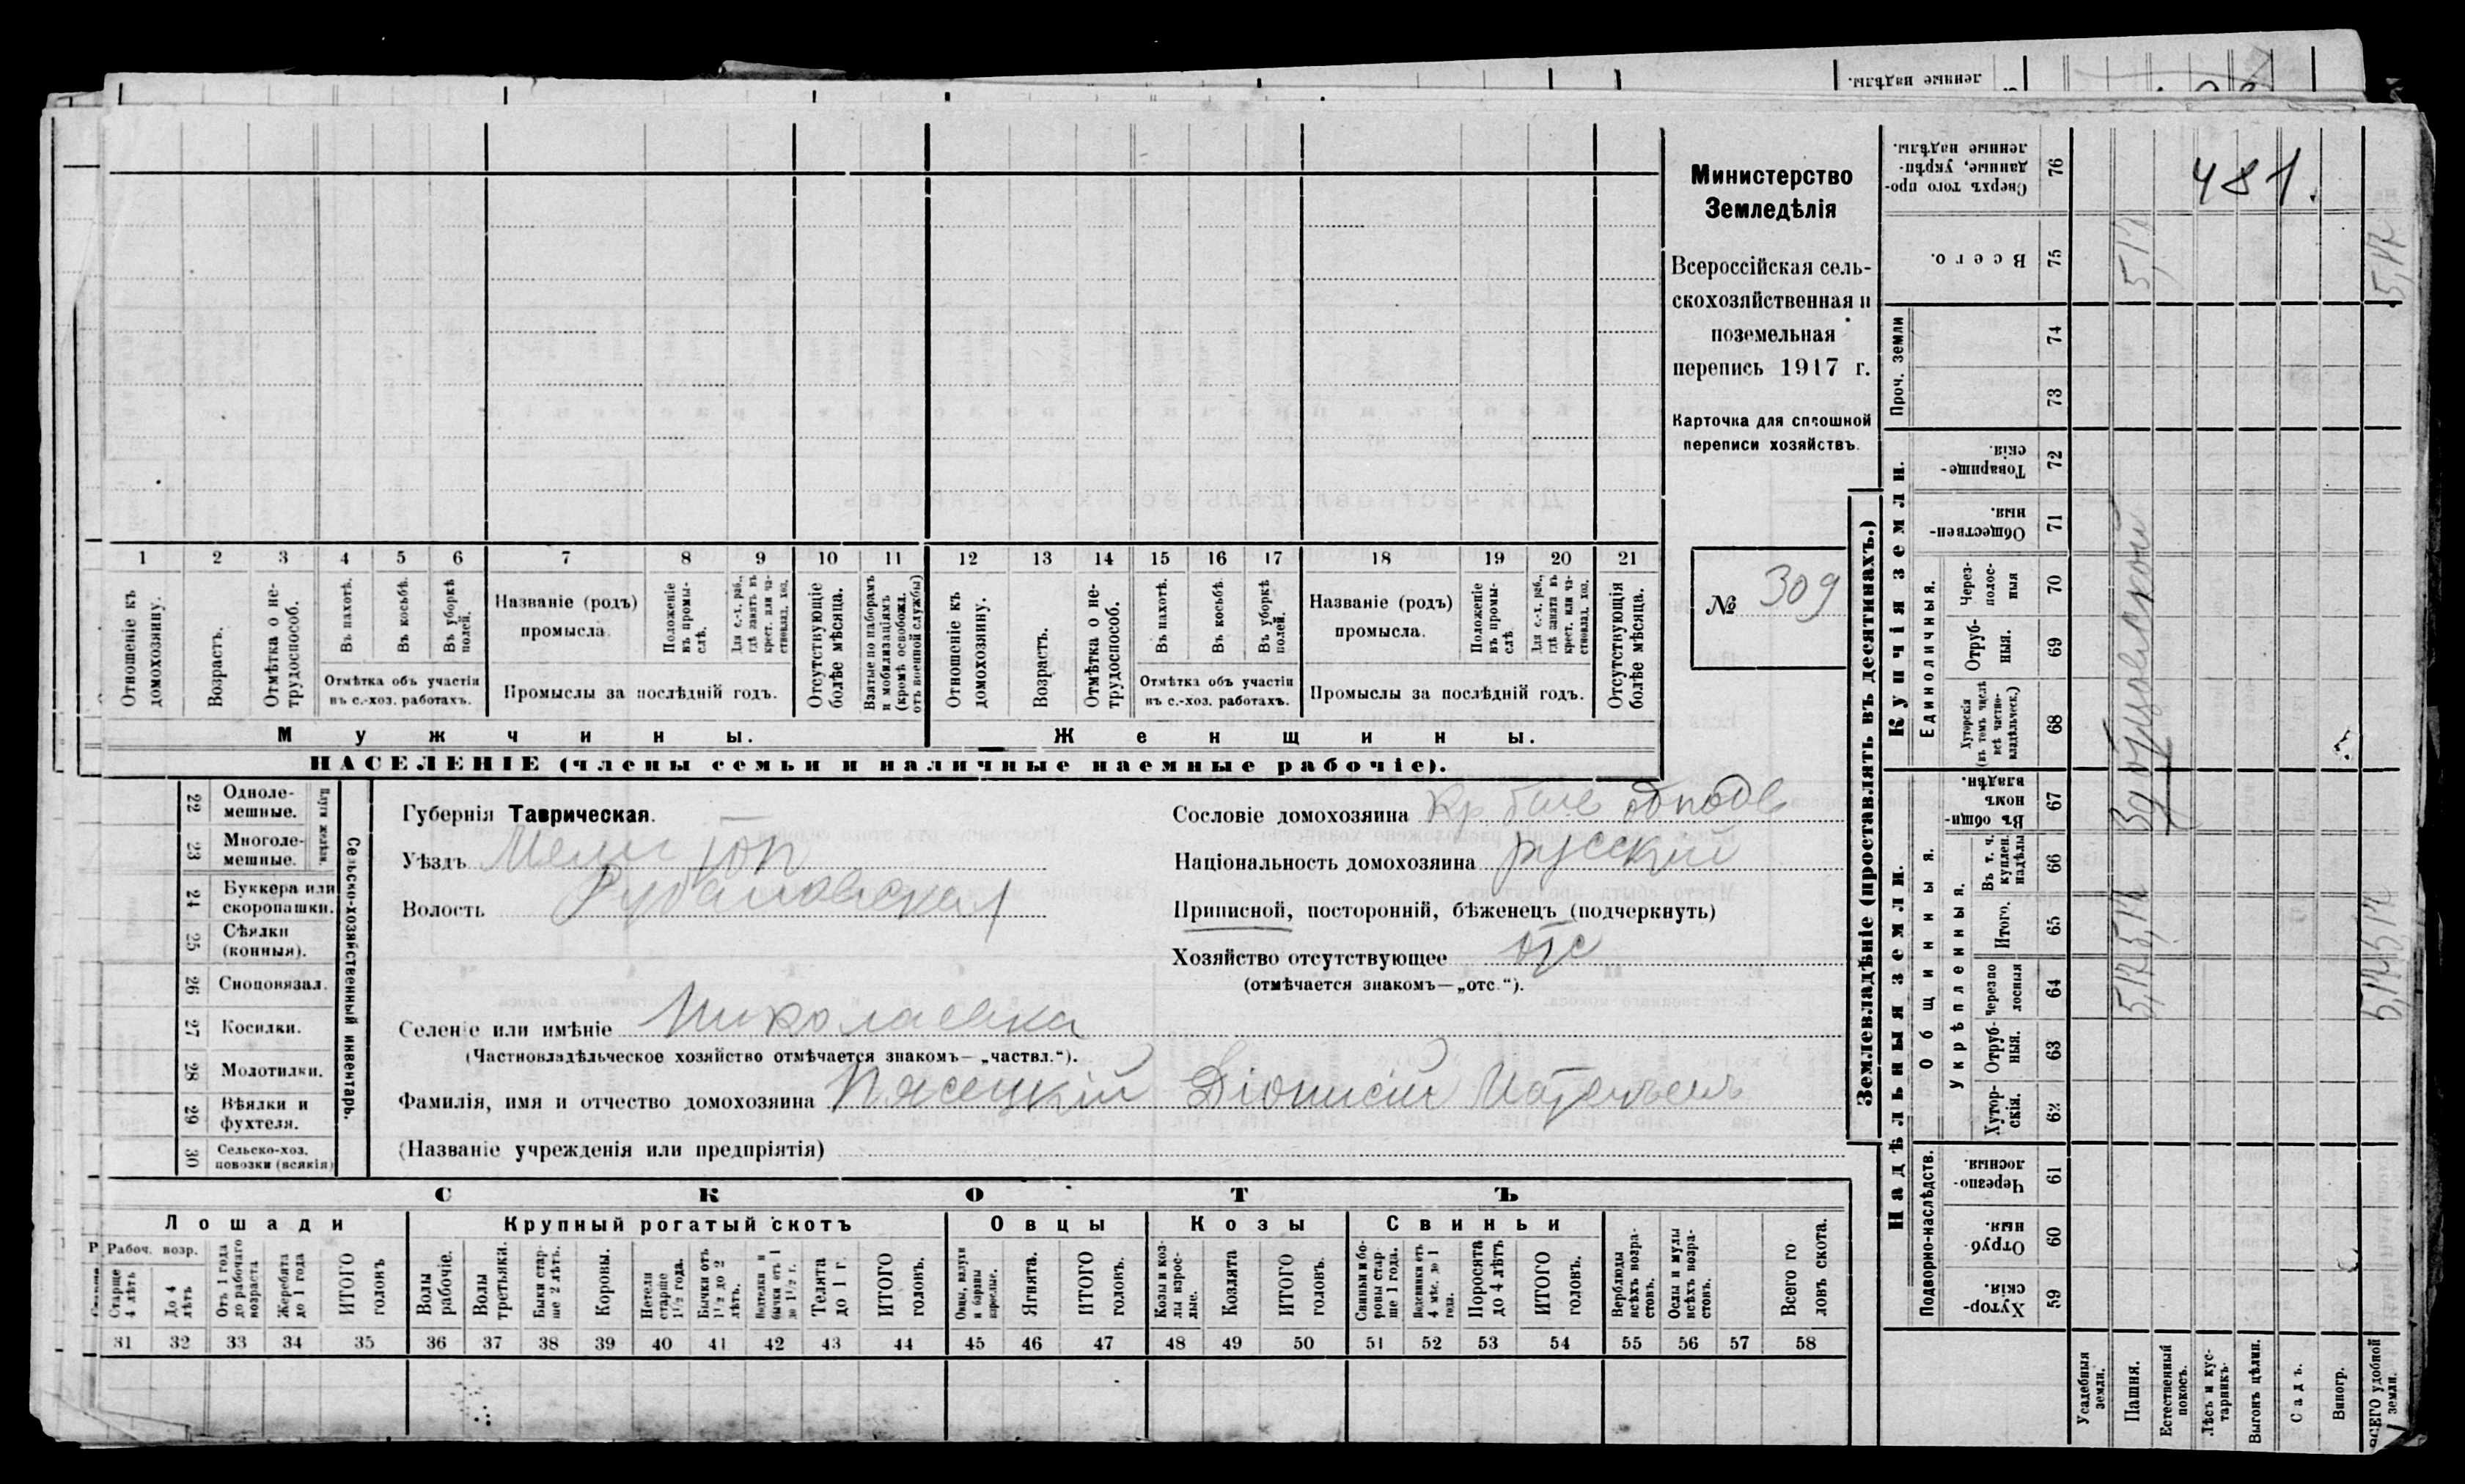 ленные надѣлы.
1 2 3 4 5 6 7 8 9 10 11 12 13 14 15 16 17 18 19 20 21
Отношеніе къ домохозяину.
Возрастъ.
Отмѣтка о нетрудоспособ.
Въ пахотѣ.
Въ косьбѣ.
Въ уборкѣ полей.
Отмѣтка объ участіи
въ с.-хоз. работахъ.
Названіе (родъ)
промысла.
Положеніе въ промыслѣ.
Для с.-х. раб., гдѣ занятъ въ крест. или частновлад. хоз.
Промыслы за послѣдній годъ.
Отсутствующіе болѣе мѣсяца.
Взятые по наборамъ и мобилизаціямъ (кромѣ освобожд. отъ военной службы)
Отношеніе къ домохозяину.
Возрастъ.
Отмѣтка о нетрудоспособ.
Въ пахотѣ.
Въ косьбѣ.
Въ уборкѣ полей.
Отмѣтка объ участіи
въ с.-хоз. работахъ.
Названіе (родъ)
промысла.
Положеніе въ промыслѣ.
Для с.-х. раб., гдѣ занята въ крест. или частновлад. хоз.
Промыслы за послѣдній годъ.
Отсутствующія болѣе мѣсяца.
Мужчины.
Женщины.
НАСЕЛЕНІЕ (члены семьи и наличные наемные рабочіе).
Министерство
Земледѣлія
Всероссійская сель-
скохозяйственная и
поземельная
перепись 1917 г.
Карточка для сплошной
переписи хозяйствъ.
№ 309
22 Одноле-
мешные.
23 Многоле-
мешные.
Плуги желѣзн.
24 Буккера или
скоропашки.
25 Сѣялки
(конныя).
26 Сноповязал.
27 Косилки.
28 Молотилки.
29 Вѣялки и
фухтеля.
30 Сельско-хоз.
повозки (всякія)
Сельско-хозяйственный инвентарь.
Губернія Таврическая.
Уѣздъ Мелитоп
Волость Рубановская
Селеніе или имѣніе Николаевка
(Частновладѣльческое хозяйство отмѣчается знакомъ—„частвл.“).
Фамилія, имя и отчество домохозяина Пясецкій Діонисій Матвѣевъ
(Названіе учрежденія или предпріятія)
Сословіе домохозяина Кр
Національность домохозяина русскій
Приписной, посторонній, бѣженецъ (подчеркнуть)
Хозяйство отсутствующее отс
(отмѣчается знакомъ—„отс.“).
СКОТЪ
Лошади
Рабоч. возр.
Старше 4 лѣтъ
До 4 лѣтъ
Отъ 1 года до рабочаго возраста
Жеребята до 1 года
ИТОГО головъ
Крупный рогатый скотъ
Волы рабочіе.
Волы третьяки.
Быки старше 2 лѣтъ.
Коровы.
Нетели старше 1½ года.
Бычки отъ 1½ до 2 лѣтъ.
Телята до 1 г.
ИТОГО головъ.
Овцы
Овцы, валухи и бараны взрослые.
Ягнята.
ИТОГО головъ.
Козы
Козы и козлы взрослые.
Козлята
ИТОГО головъ.
Свиньи
Свиньи и боровы старше 1 года.
Подсвинки отъ 4 мѣс. до 1 года.
Поросята до 4 лѣтъ
ИТОГО головъ.
Верблюды всѣхъ возрастовъ.
Ослы и мулы всѣхъ возрастовъ.
Всего головъ скота.
31 32 33 34 35 36 37 38 39 40 41 42 43 44 45 46 47 48 49 50 51 52 53 54 55 56 57 58
Землевладѣніе (проставлять въ десятинахъ.)
Надѣльныя земли.
Купчія земли.
Проч. земли
Подворно-наслѣдств.
Общинныя.
Укрѣпленныя.
Единоличныя.
59 Хуторскія
60 Отрубныя.
61 Черезполосныя.
62 Хуторскія.
63 Отрубныя.
64 Черезполосныя
65 Итого.
66 Въ т. ч. куплен. надѣлы
67 Въ общинномъ владѣн.
68 Хуторскія (въ томъ числѣ всѣ частновладѣльческ.)
69 Отрубныя.
70 Черезполосныя
71 Общественныя.
72 Товарищескія.
73
74
75 Всего.
76 Сверхъ того проданные, укрѣпленные надѣлы.
Усадебныя земли.
Пашня.
Естественный покосъ.
Лѣсъ и кустарникъ.
Выгонъ цѣлин.
Садъ.
Виногр.
ВСЕГО удобной земли.
481.